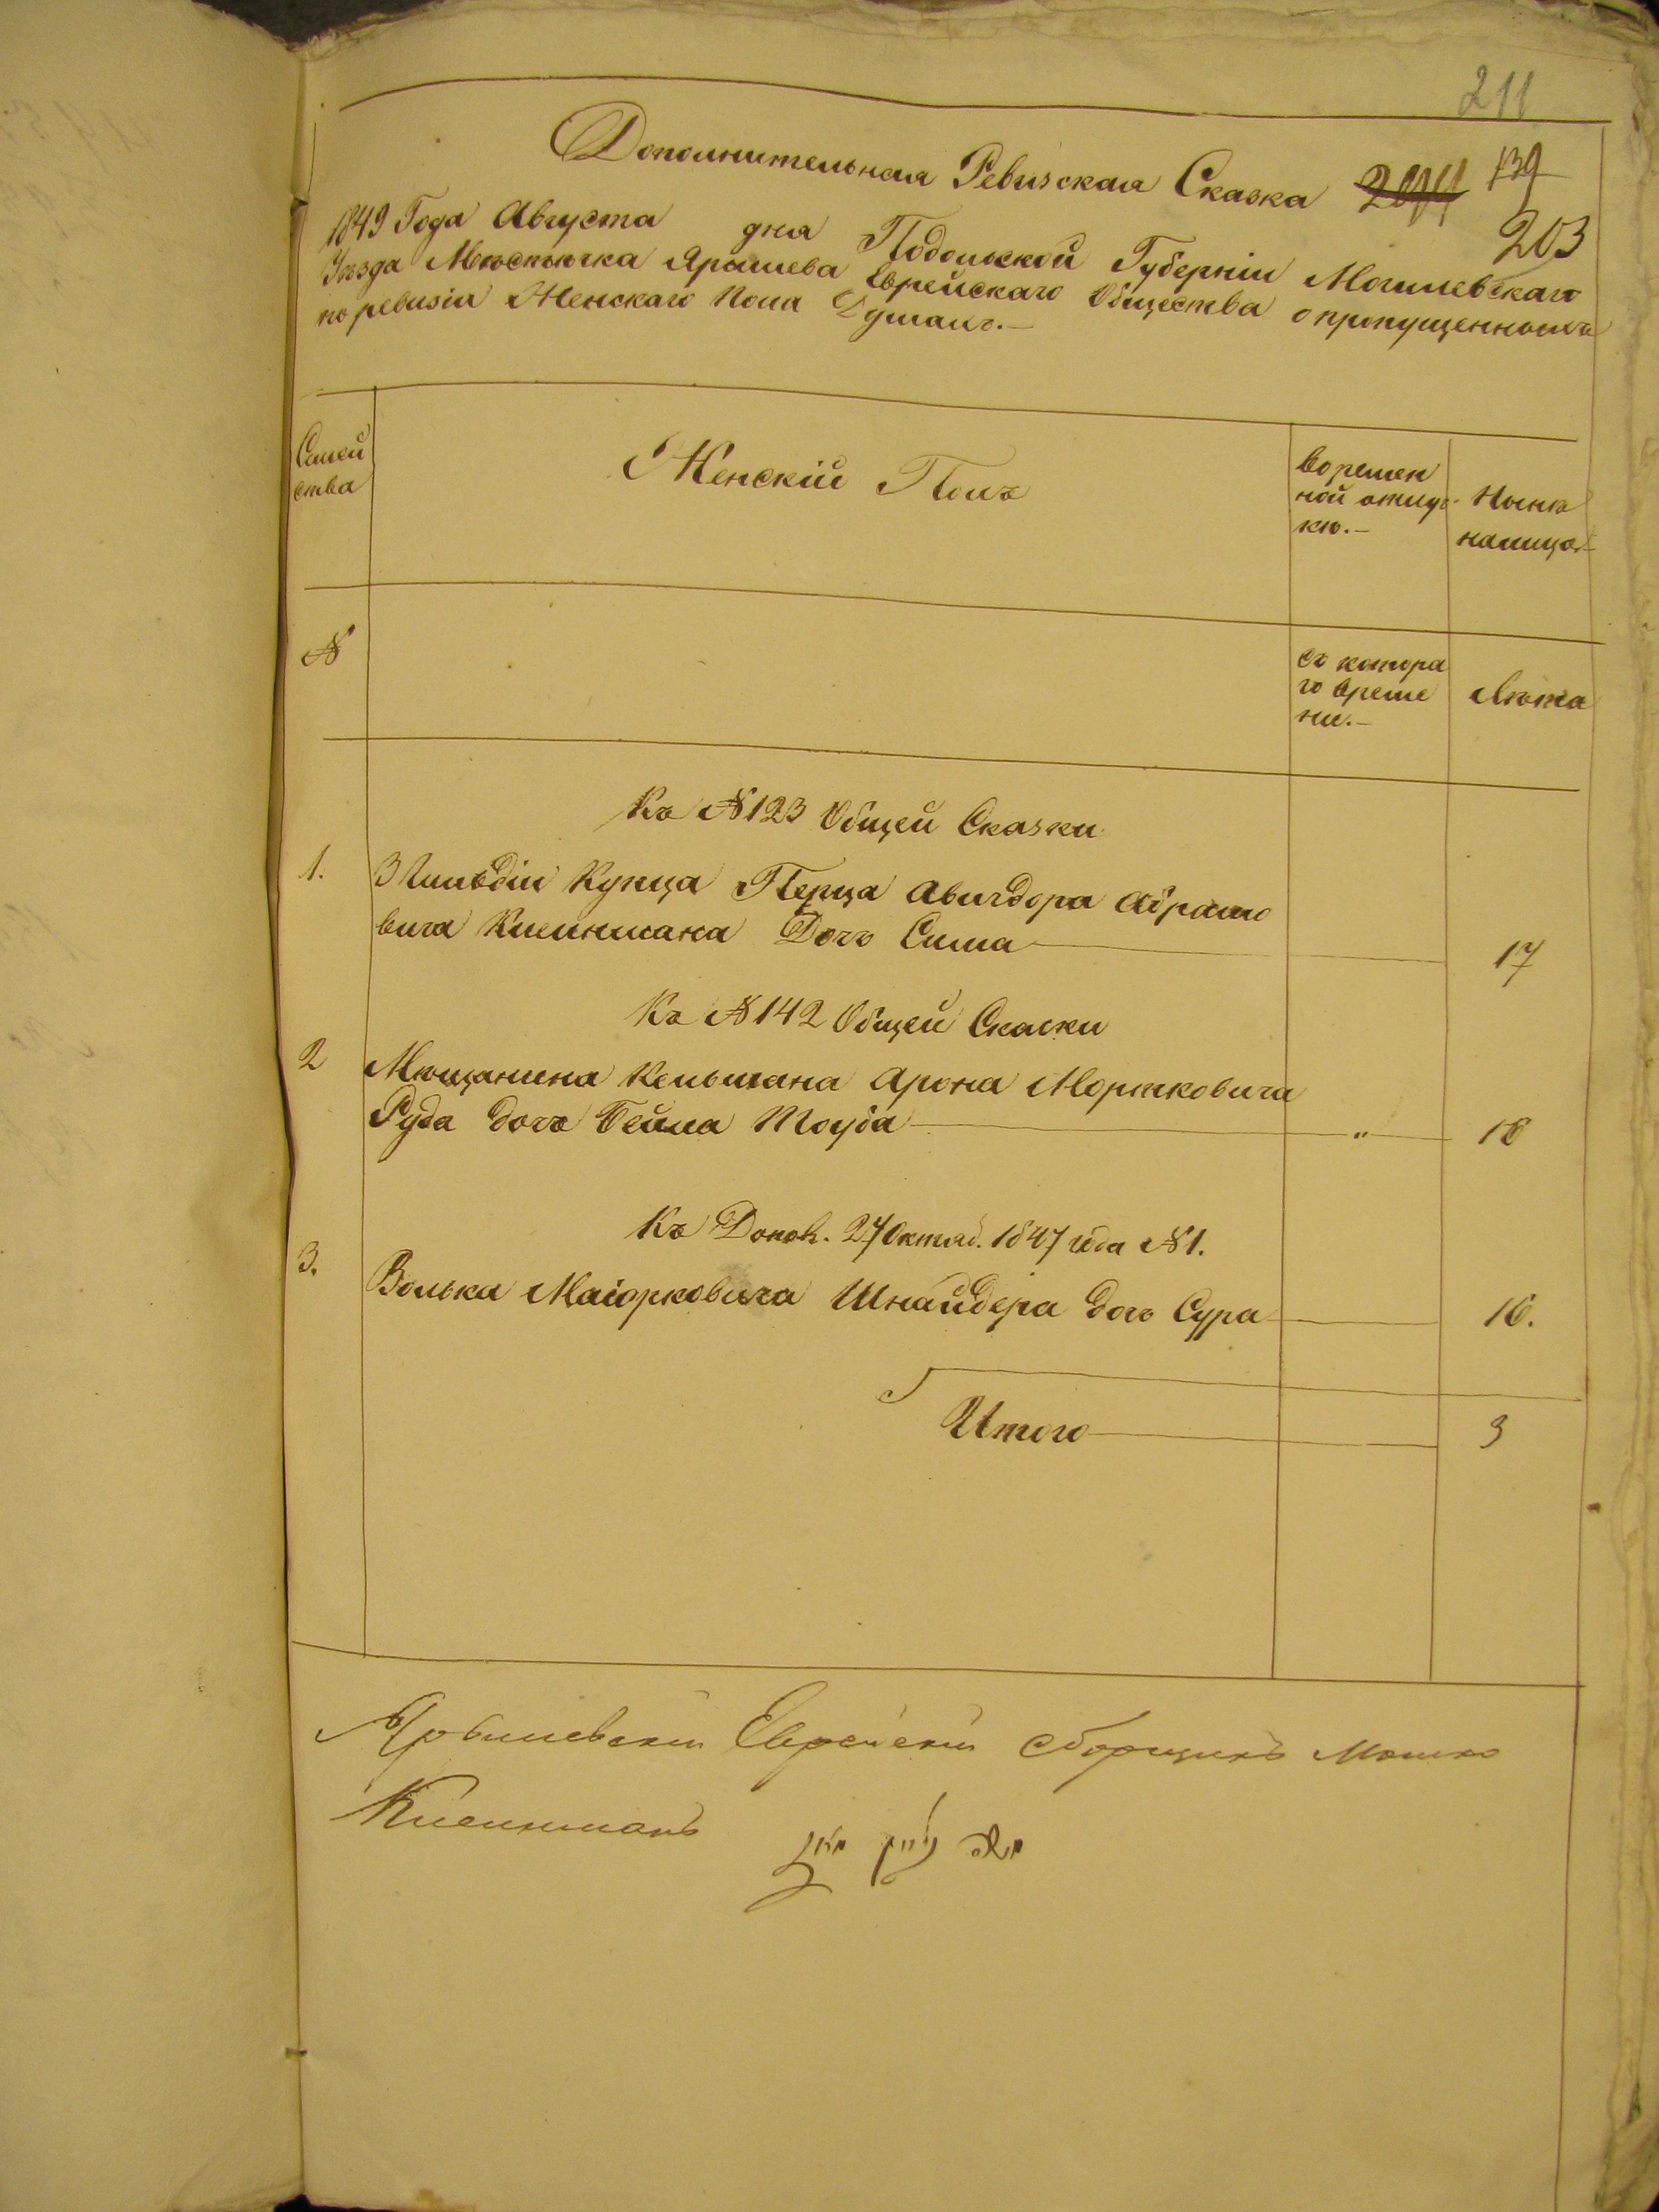 211
Дополнительная Ревизская Сказка 139
203
1849 Года Августа дня Подольской Губерніи Могилевскаго
Уѣзда Мѣстѣчка Ярышева Еврейскаго Общества о пропущенныхъ
по ревизіи Женскаго Пола Душахъ.—
Семей
ства
Женскій Полъ
Во времен
ной отлуч-
кѣ.—
Нынѣ
налицо
№
Съ котора
го време
ни.—
Лѣта
Къ № 123 Общей Сказки
1. 3 Гильдіи Купца Перца Авигдора Абрамо
вича Клейнмана Дочь Сима 17
Къ № 142 Общей Скаски
2 Мѣщанина Кельмана Арона Мортковича
Руда дочь Бейла 18
Къ Допол. 27 Октяб. 1847 года № 1.
3. Волька Маіорковича Шнайдера дочь Сура 16.
Итого 3
Ярышевскій Еврейскій Сборщикъ Мошко
Клейнманъ
משה קליינמאן